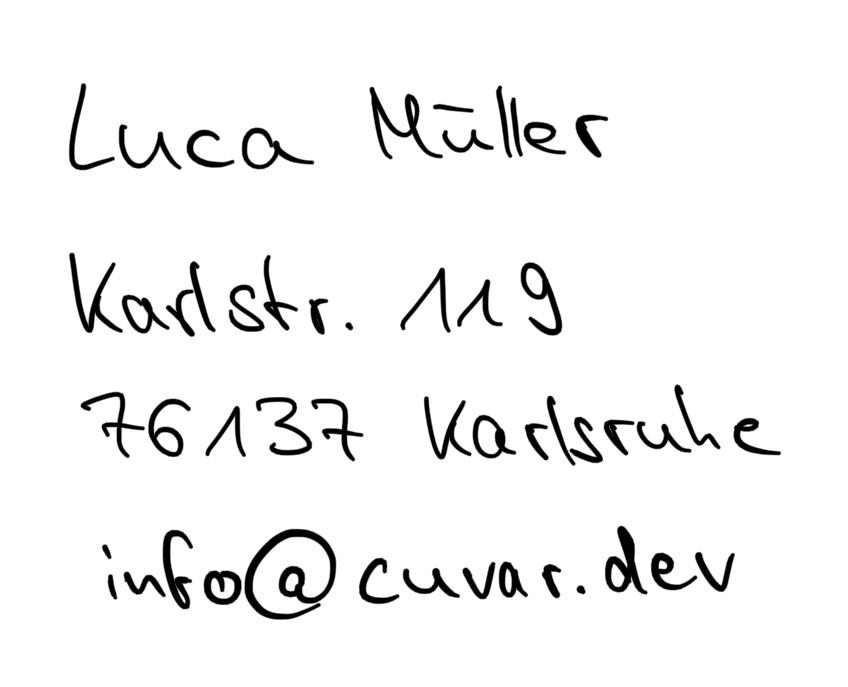 Luca Müller
Karlstr. 119
76137 Karlsruhe
info@cuvar.dev